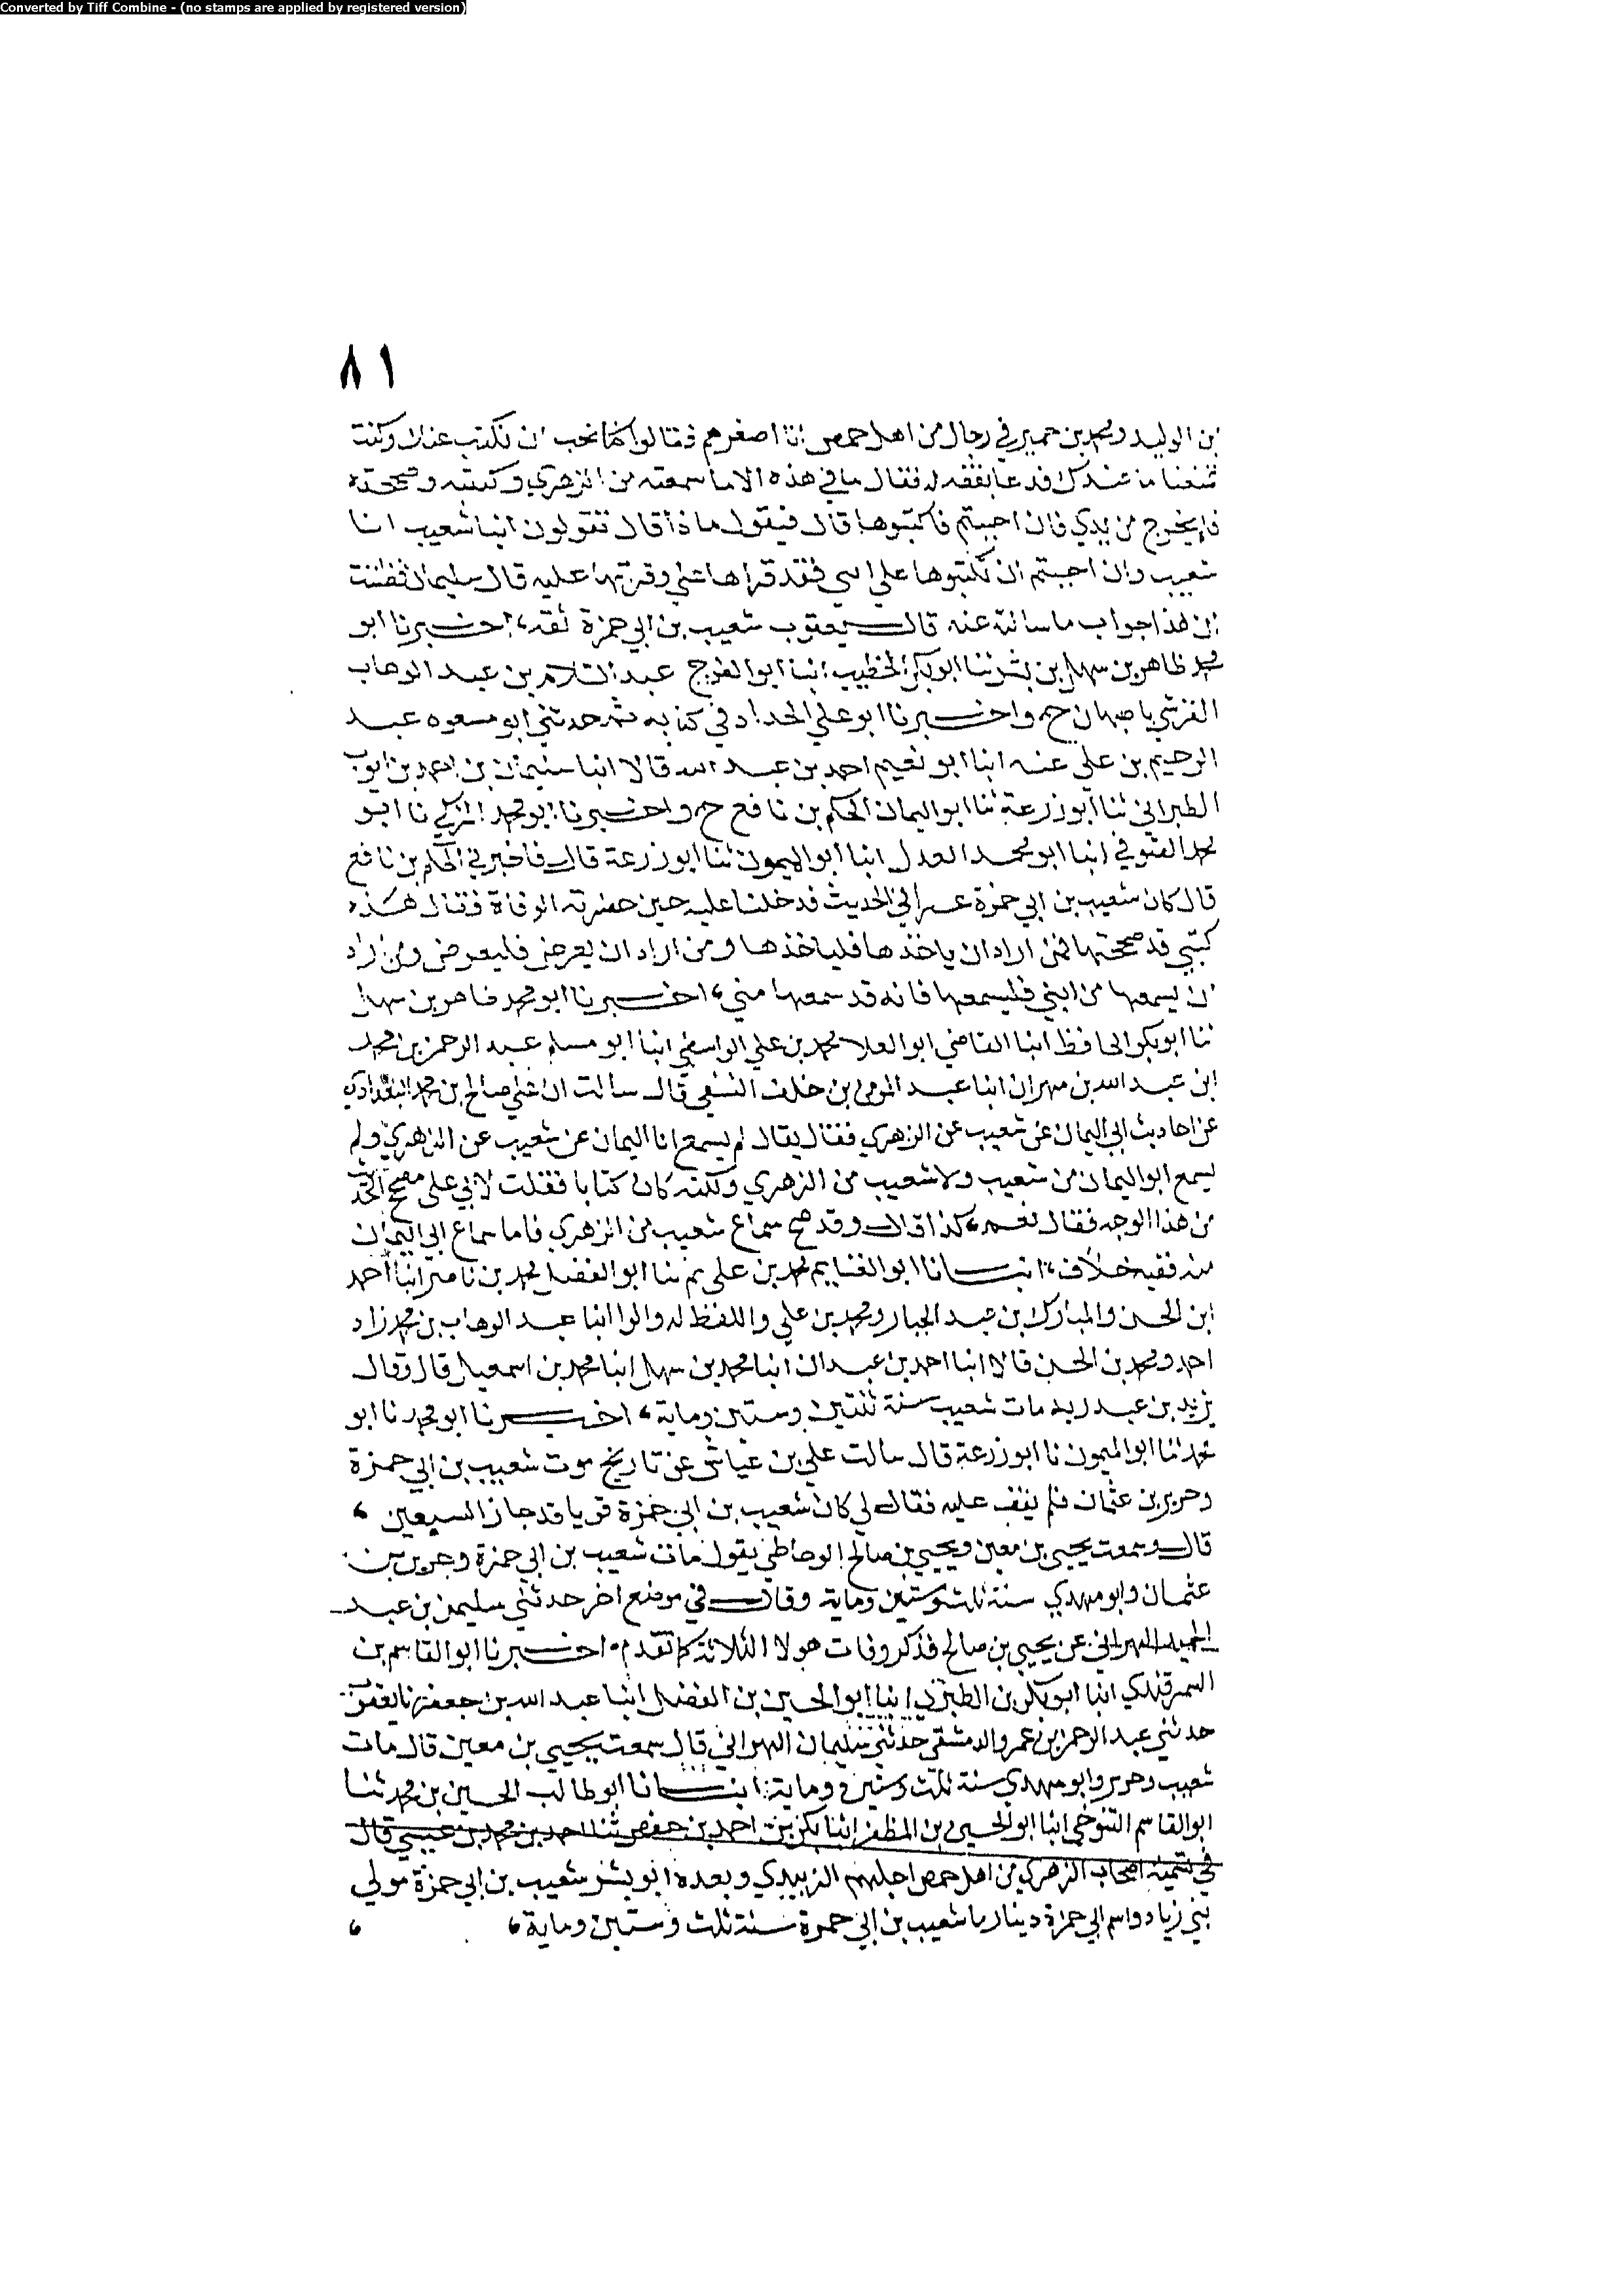 Converted by Tiff Combine - (no stamps are applied by registered version)
٨١
بن الوليد ومحمد بن حمير في رجال من اهل حمص انا اصغرهم فقالوا كنا نحب ان نكتب عنك وكنت
تمنعنا ما عندك فدعا بقفه له فقال ما في هذه الا ما سمعته من الزهري وكتبته وصححته
فلم يخرج من يدي فان احببتم فاكتبوها قال فيقول ماذا قال تقولون انبا شعيب انا
شعيب وان احببتم ان تكتبوها علي ابني فقد قراها علي وقرتها عليه قال سليمان فظننت
ان هذا جواب ما سالته عنه قال يعقوب شعيب بن ابي حمزة ثقه، اخبرنا ابو
محمد طاهر بن سهل بن بشر ثنا ابو بكر الخطيب انبا ابو الفرج عبد السلام بن عبد الوهاب
القرشي باصبهان ح واخبرنا ابو علي الحداد في كتابه ثم حدثني ابو مسعود عبد
الرحيم بن علي عنه انبا ابو نعيم احمد بن عبد الله قالا انبا سليمان بن احمد بن ايوب
الطبراني ثنا ابو زرعة ثنا ابو اليمان الحكم بن نافع ح واخبرنا ابو محمد المزكي نا ابو
محمد الصوفي انبا ابو محمد العدل انبا ابو الميمون ثنا ابو زرعة قال فاخبرني الحكم بن نافع
قال كان شعيب بن ابي حمزة عسرا في الحديث فدخلنا عليه حين حضرته الوفاة فقال هذه
كتبي قد صححتها فمن اراد ان ياخذها فلياخذها ومن اراد ان يعرض فليعرض ومن اراد
ان يسمعها من ابني فليسمعها فانه قد سمعها مني، اخبرنا ابو محمد طاهر بن سهل
ثنا ابو بكر الحافظ انبا القاضي ابو العلا محمد بن علي الواسطي انبا ابو مسلم عبد الرحمن بن محمد
ابن عبد الله بن مهران انبا عبد المومن بن خلف النسفي قال سالت ابا علي صالح بن محمد البغدادي
عن احاديث ابي اليمان عن شعيب عن الزهري فقال يقال لم يسمع ابا اليمان عن شعيب عن الزهري ولم
يسمع ابو اليمان من شعيب ولا شعيب من الزهري ولكنه كان كتابا فقلت لابي علي مصح الحديث
من هذا الوجه فقال نعم، كذا قال وقد صح سماع شعيب من الزهري فاما سماع ابي اليمان
منه ففيه خلاف، انبانا ابو الغنايم محمد بن علي ثم ثنا ابو الفضل محمد بن ناصر انبا احمد
ابن الحسن والمبارك بن عبد الجبار ومحمد بن علي واللفظ له قالوا انبا عبد الوهاب بن محمد زاد
احمد ومحمد بن الحسن قالا انبا احمد بن عبدان انبا محمد بن سهل انبا محمد بن اسمعيل قال وقال
يزيد بن عبد ربه مات شعيب سنة ثنتين وستين وماية، اخبرنا ابو محمد نا ابو
محمد انبا ابو الميمون نا ابو زرعة قال سالت علي بن عياش عن تاريخ موت شعيب بن ابي حمزة
وحريز بن عثمان فلم يقف عليه فقال لي كان شعيب بن ابي حمزة قويا قد جاز السبعين،
قال وسمعت يحيي بن معين ويحيي بن صالح الوحاظي يقول مات شعيب بن ابي حمزة وحريز بن
عثمان وابو مهدي سنة ثلث وستين وماية وقال في موضع اخر حدثني سليمن بن عبد
الحميد البهراني عن يحيي بن صالح فذكر وفات هولا الثلاثة كما تقدم، اخبرنا ابو القاسم بن
السمرقندي انبا ابو بكر بن الطبري انبا ابو الحسين بن الفضل انبا عبد الله بن جعفر نا يعقوب
حدثني عبد الرحمن بن عمرو الدمشقي حدثني سليمان البهراني قال سمعت يحيي بن معين قال مات
شعيب وحريز وابو مهدي سنة ثلث وستين وماية، انبانا ابو طالب الحسين بن محمد ثنا
ابو القاسم التنوخي انبا ابو الحسين بن المظفر انبا بكر بن احمد بن حفص ثنا احمد بن محمد بن عيسي قال
في تسمية اصحاب الزهري من اهل حمص اجلهم الزبيدي وبعده ابو بشر شعيب بن ابي حمزة مولي
بني زياد واسم ابي حمزة دينار مات شعيب بن ابي حمزة سنة ثلث وستين وماية،